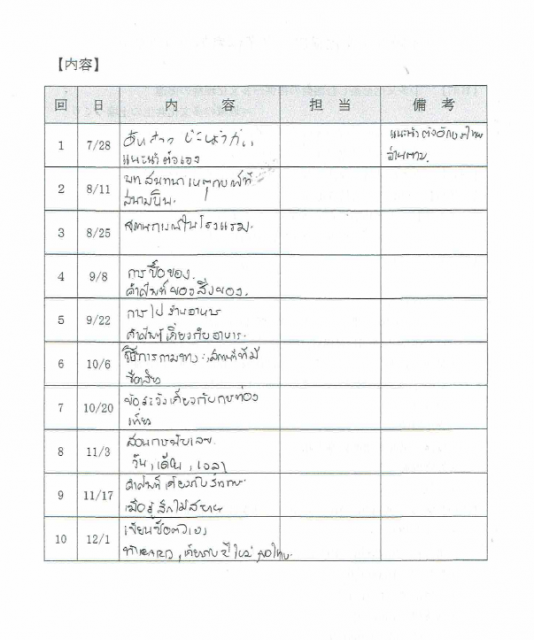 【内容】
回 日 内 容 担 当 備 考
1 7/28 แนะนำตัวอักษรไทย
แนะนำตัวเอง อ่านตาม.
2 8/11 บทสนทนาเหตุการณ์ที่
สนามบิน.
3 8/25 สถานการณ์ในโรงแรม.
4 9/8 การซื้อของ.
คำศัพท์ของสิ่งของ.
5 9/22 การไปร้านอาหาร
คำศัพท์เกี่ยวกับอาหาร.
6 10/6 วิธีการถามทาง : สถานที่ที่มี
ชื่อเสียง
7 10/20 ข้อระวังเกี่ยวกับการท่อง
เที่ยว
8 11/3 สอนการนับเลข
วัน, เดือน, เวลา
9 11/17 คำศัพท์เกี่ยวกับร่างกาย
เมื่อรู้สึกไม่สบาย
10 12/1 เขียนชื่อตัวเอง
, เกี่ยวกับปีใหม่ของไทย.